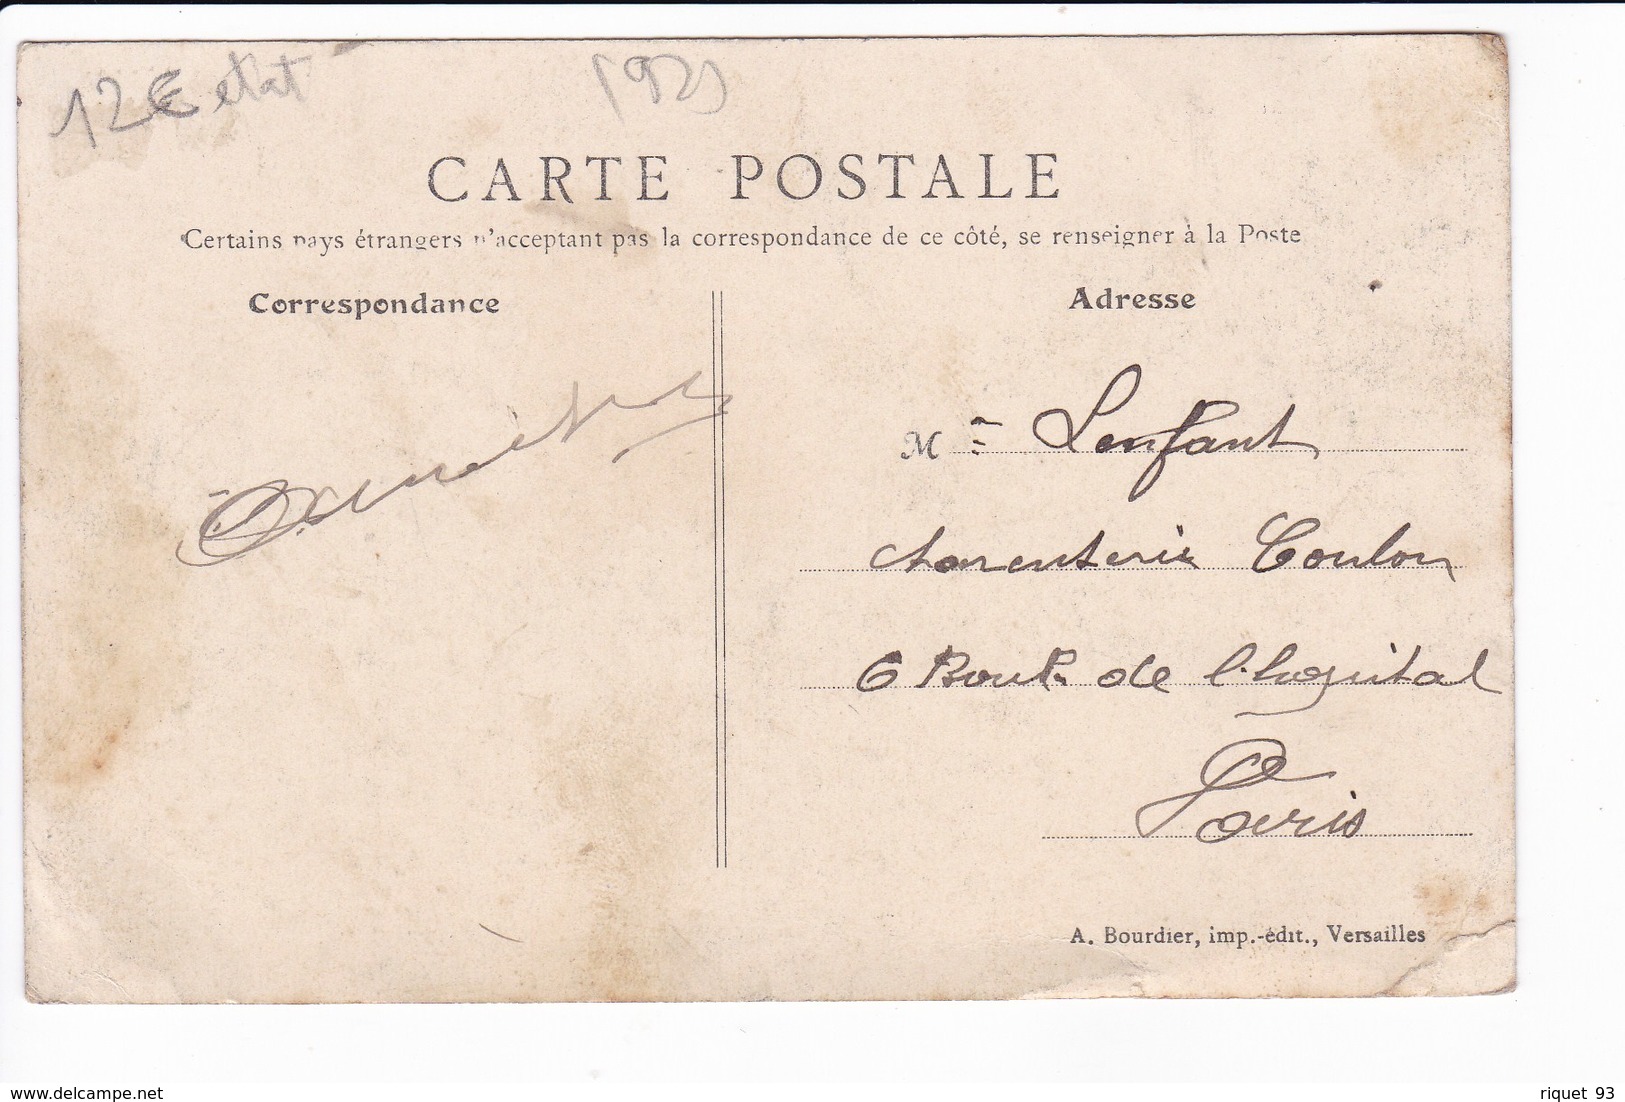 12€ etat (92)
CARTE POSTALE
Certains pays étrangers n'acceptant pas la correspondance de ce côté, se renseigner à la Poste
Correspondance
Adresse
M Lenfant
Coulon
6 Boul de l'hopital
Paris
A. Bourdier, imp.-édit., Versailles
www.delcampe.net
riquet 93